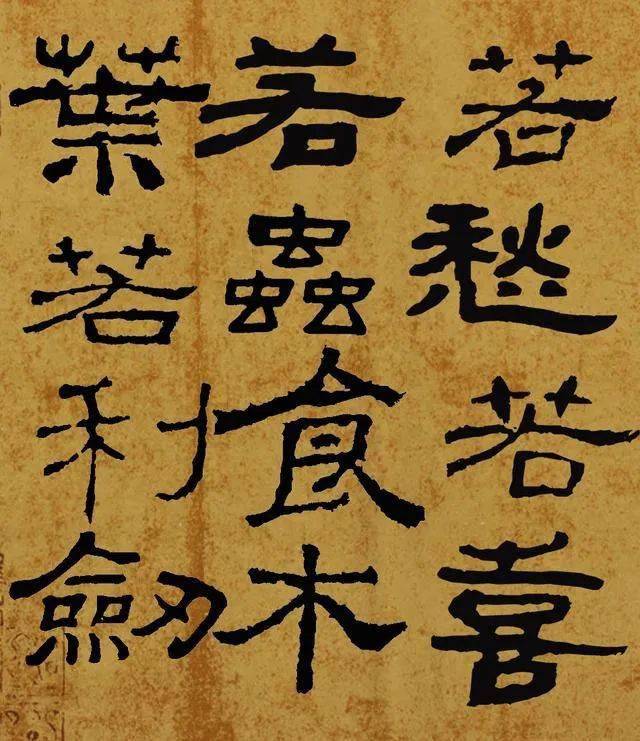 若愁若喜
若蟲食木
葉若利劒